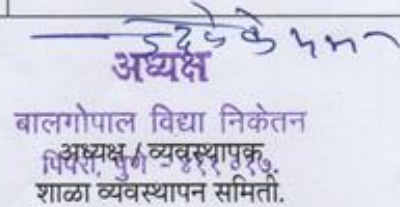 अध्यक्ष
बालगोपाल विद्या निकेतन
पिंपरी, पुणे - ४११ ०१७.
अध्यक्ष / व्यवस्थापक,
शाळा व्यवस्थापन समिती.